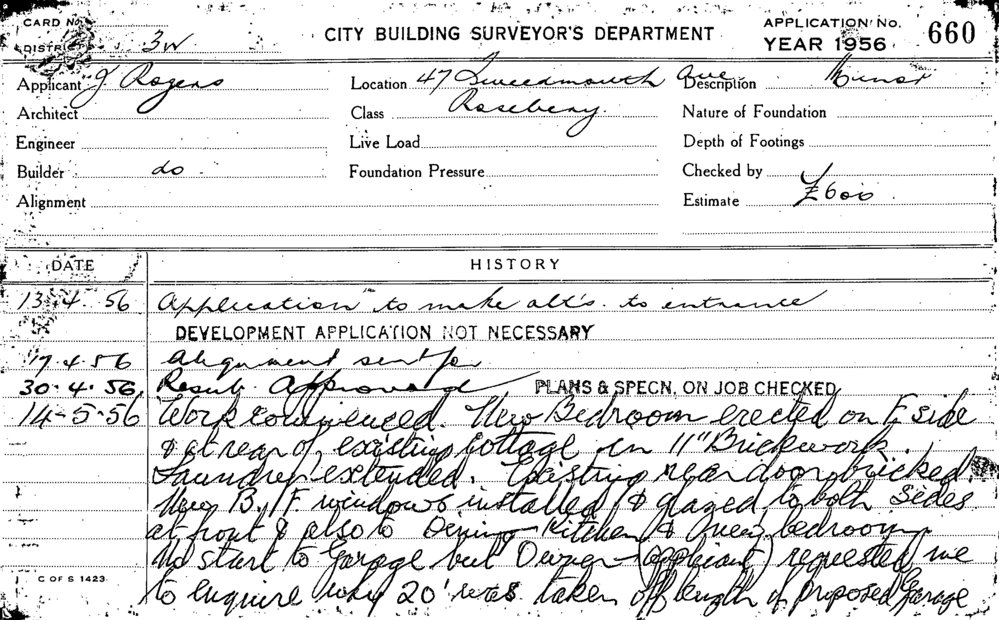 CARD No.
CITY BUILDING SURVEYOR'S DEPARTMENT
APPLICATION No. 660
DISTRICT 3W
YEAR 1956
Applicant J Rogers
Location 47 Tweedmouth Ave
Description Minor
Architect
Class Rosebery.
Nature of Foundation
Engineer
Live Load
Depth of Footings
Builder do.
Foundation Pressure
Checked by
Alignment
Estimate £600
DATE HISTORY
13.4.56 Application to make alt's. to entrance
DEVELOPMENT APPLICATION NOT NECESSARY
17.4.56 Alignment sent for
30.4.56. Resub. Approved PLANS & SPECN, ON JOB CHECKED
14-5-56 Work commenced. New Bedroom erected on E side
& at rear of existing cottage in 11" Brickwork.
Laundry extended. Existing rear door bricked.
New B.F. windows installed & glazed to both sides
at front & also to Dining Kitchen & bedroom
No start to Garage but Owner (applicant) requested me
to enquire why 20' was taken off length of proposed Garage
C OF S 1423